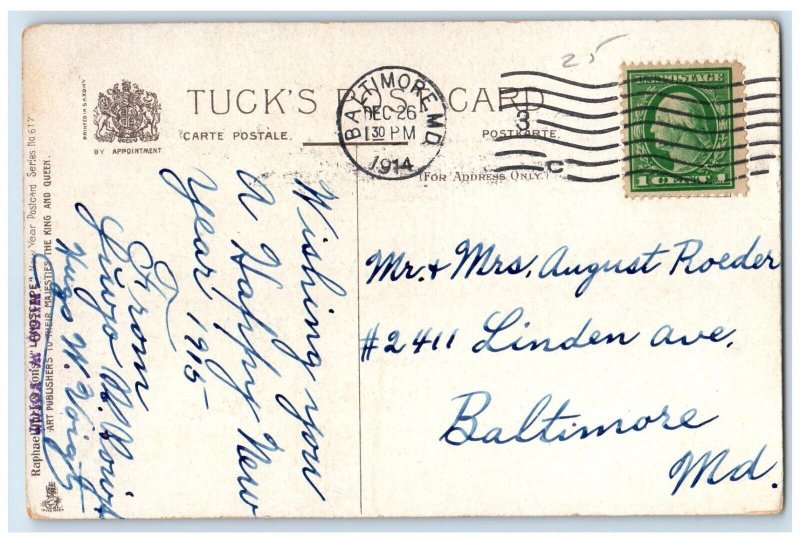 25
TUCK'S POST CARD
CARTE POSTALE.
POSTKARTE.
(FOR ADDRESS ONLY.)
PRINTED IN SAXONY
BY APPOINTMENT
BALTIMORE, MD.
DEC 26
1 30 PM
1914
3
C
U.S. POSTAGE
1 CENT 1
Wishing you
A Happy New
Year 1915-
From
Hugo W. Voigt
Mr. & Mrs. August Roeder
#2411 Linden Ave.
Baltimore
Md.
Raphael "LANDSCAPE" New Year Postcard Series No. 617
ART PUBLISHERS TO THEIR MAJESTIES THE KING AND QUEEN.